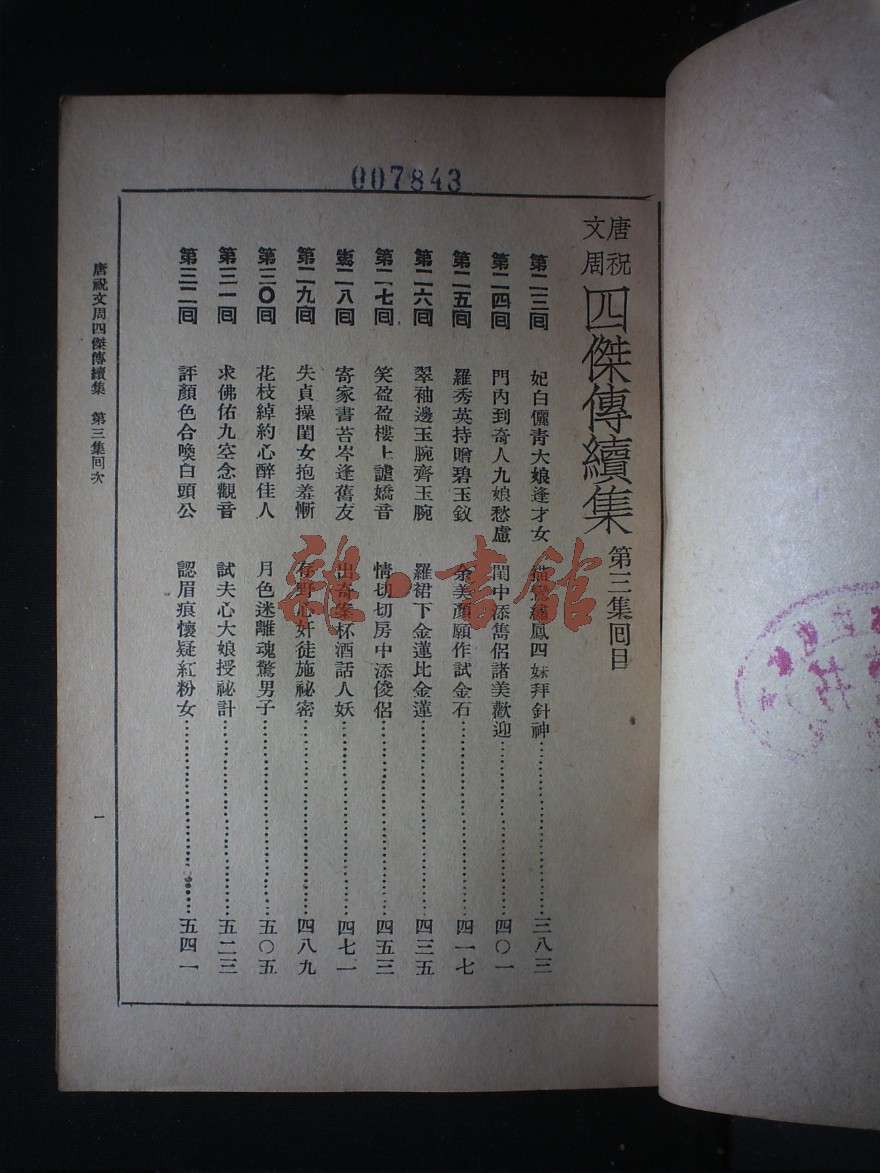 007843
唐祝文周四傑傳續集 第三集囘目
第二三囘 妃白儷青大娘逢才女 描鸞繡鳳四妹拜針神 三八三
第二四囘 門內到奇人九娘愁慮 閨中添雋侶諸美歡迎 四〇一
第二五囘 羅秀英持贈碧玉釵 余美顏願作試金石 四一七
第二六囘 翠袖邊玉腕齊玉腕 羅裙下金蓮比金蓮 四三五
第二七囘 笑盈盈樓上謔嬌音 情切切房中添俊侶 四五三
第二八囘 寄家書苔岑逢舊友 出奇案杯酒話人妖 四七一
第二九囘 失貞操閨女抱羞慚 存野心奸徒施祕密 四八九
第三〇囘 花枝綽約心醉佳人 月色迷離魂驚男子 五〇五
第三一囘 求佛佑九空念觀音 試夫心大娘授祕計 五二三
第三二囘 評顏色合喚白頭公 認眉痕懷疑紅粉女 五四一
唐祝文周四傑傳續集 第三集囘次
一
雜·書館